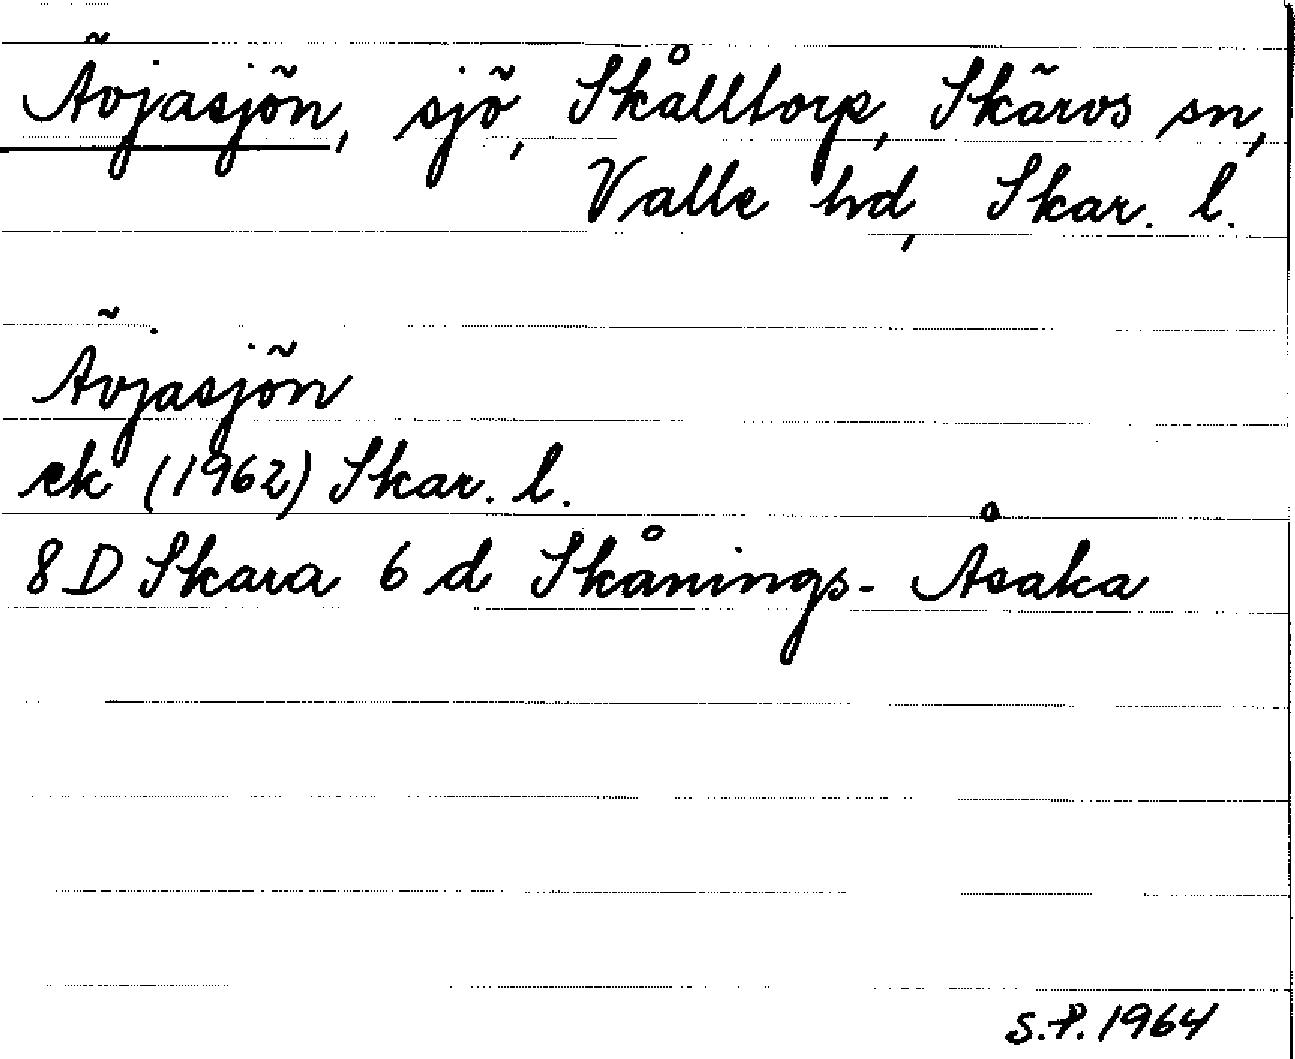 Ävjasjön, sjö, Skålltorp, Skärvs sn,
Valle hd, Skar. l.
Ävjasjön
ek (1962) Skar. l.
8 D Skara 6 d Skånings-Åsaka
S.P. 1964